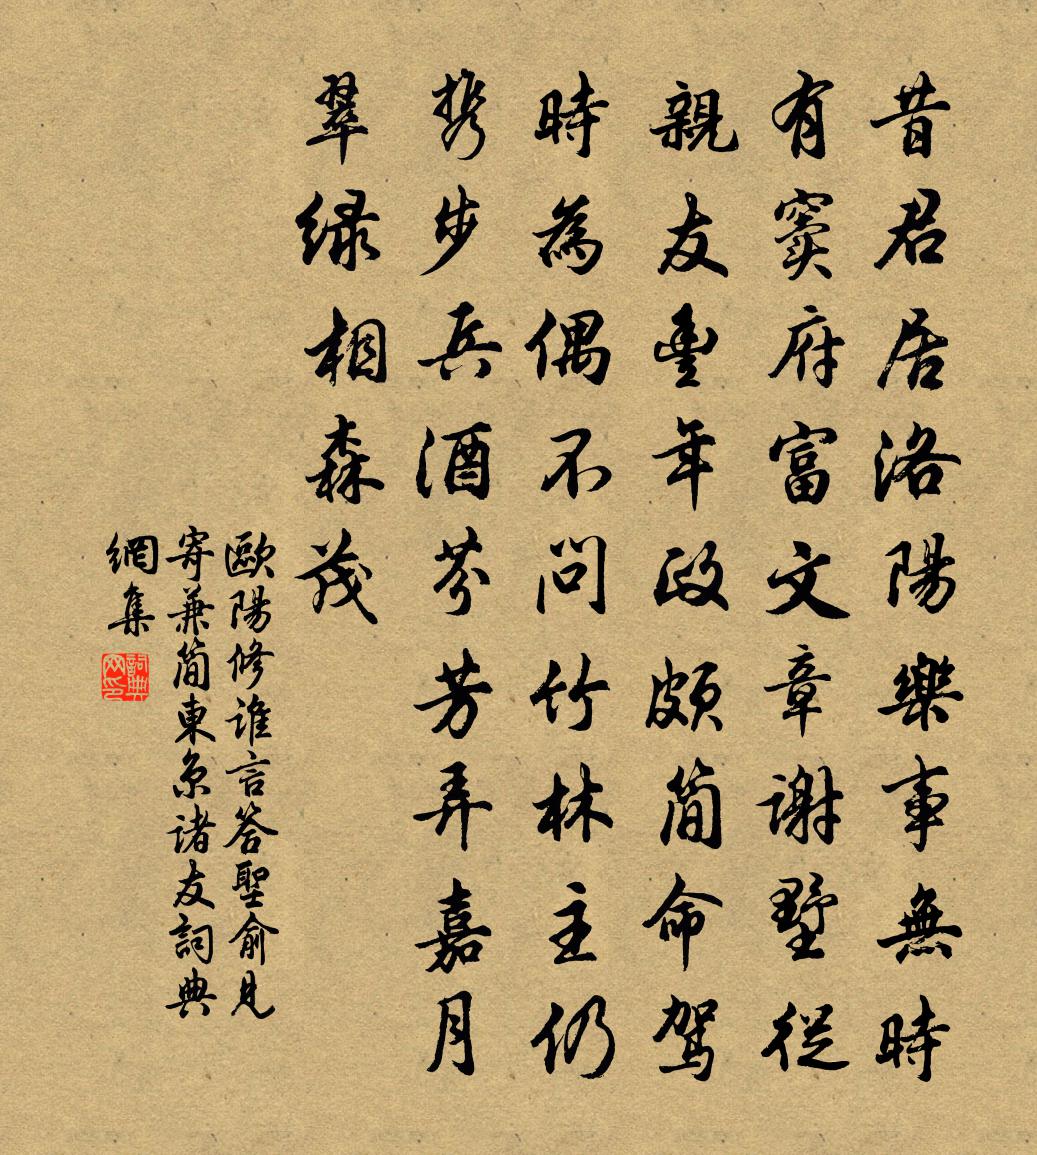 昔君居洛陽樂事無時
有竇府富文章謝墅從
親友豐年政頗簡命駕
時為偶不問竹林主仍
携步兵酒芬芳弄嘉月
翠绿相森茂
歐陽修谁言答聖俞見
寄兼简東京诸友詞典
網集
詞典
网印